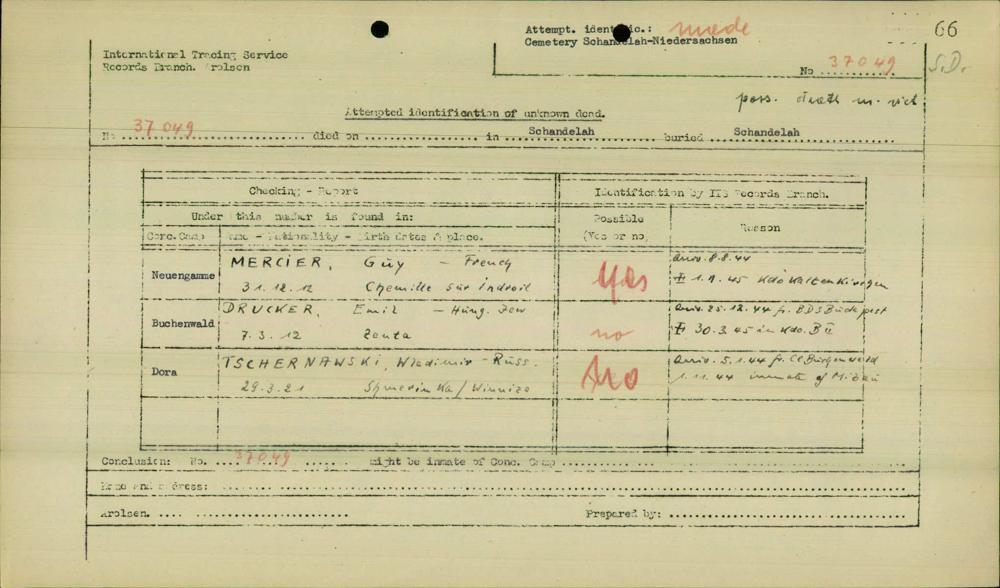 Attempt. identific.: made
Cemetery Schandelah-Niedersachsen
66
International Tracing Service
Records Branch. Arolsen
No 37049
S.D.
poss. death m. vict
Attempted identification of unknown dead.
No 37 049 died on in Schandelah buried Schandelah
Checking - Report
Identification by ITS Records Branch.
Under this number is found in:
Possible
(Yes or no)
Reason
Conc.Camp
Name - Nationality - Birth dates & place.
Neuengamme
MERCIER, Guy - French
31.12.12 Chemille sur Indroit
Yes
arriv. 8.8.44
1.1.45 Kdo Kaltenkirchen
Buchenwald
DRUCKER, Emil - Hung. Jew
7.3.12 Zenta
no
arriv. 25.12.44 fr. BDS Budapest
30.3.45 in Kdo. B II
Dora
TSCHERNAWSKI, Wladimir - Russ.
29.3.21 Shmerinka/Winniza
No
arriv. 5.1.44 fr. CC Buchenwald
1.11.44 inmate of Mibau
Conclusion: No. 37049 might be inmate of Conc. Camp
Name and address:
Arolsen.
Prepared by: